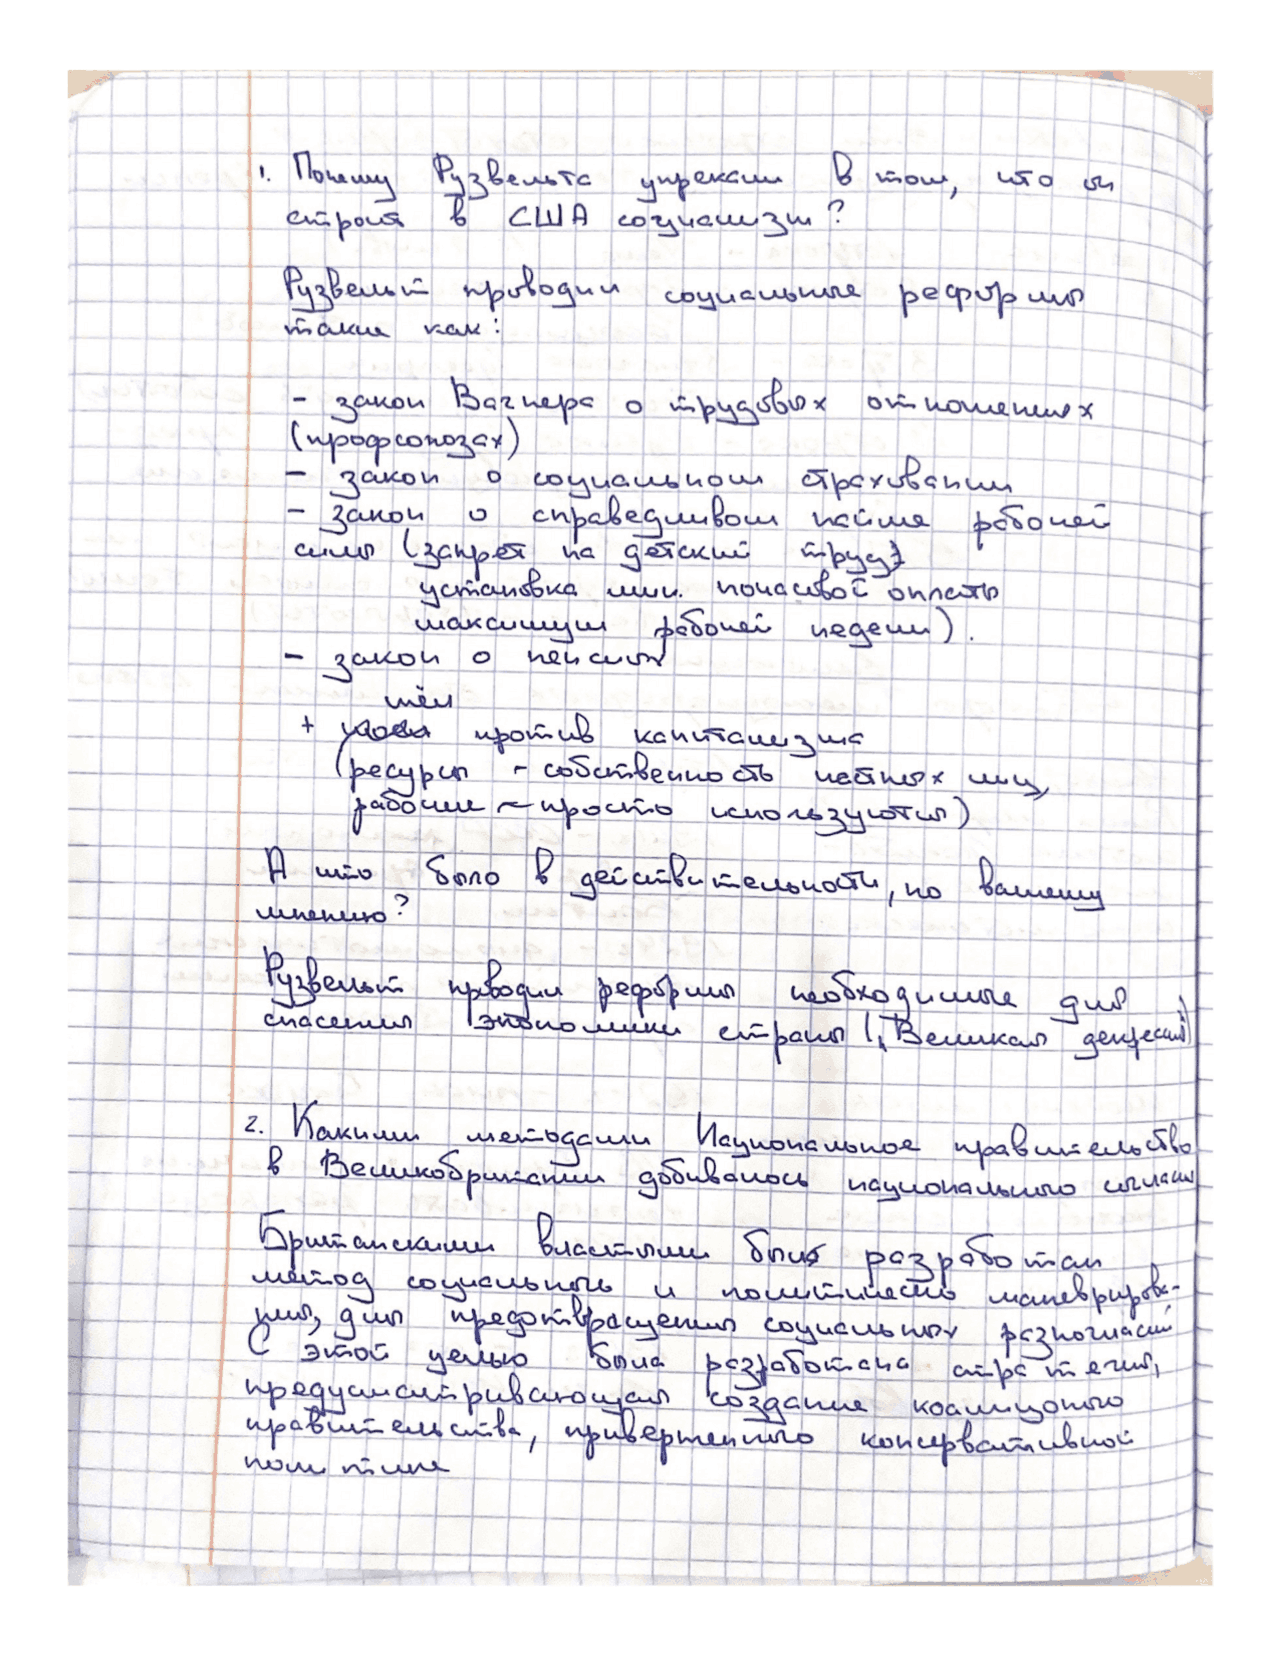 1. Почему Рузвельта упрекали в том, что он
строит в США социализм?
Рузвельт проводил социальные реформы
такие как:
- закон Вагнера о трудовых отношениях
(профсоюзах)
- закон о социальном страховании
- закон о справедливом найме рабочей
силы (запрет на детский труд,
установка мин. почасовой оплаты
максимум рабочей недели).
- закон о пенсиях
шёл
+ против капитализма
(ресурсы - собственность частных лиц,
рабочие - просто используются)
А что было в действительности, по вашему
мнению?
Рузвельт проводил реформы необходимые для
спасения экономики страны (Великая депрессия)
2. Какими методами Национальное правительство
в Великобритании добивалось национального согласия
Британскими властями был разработан
метод социального и политического маневрирова-
ния, для предотвращения социальных разногласий
С этой целью была разработана стратегия,
предусматривающая создание коалиционого
правительства, приверженного консервативной
политике